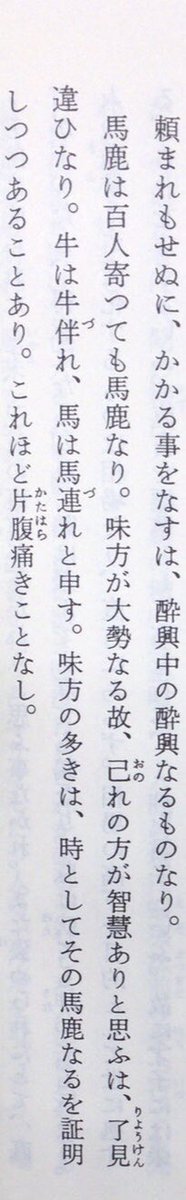 頼まれもせぬに、かかる事をなすは、酔興中の酔興なるものなり。
馬鹿は百人寄つても馬鹿なり。味方が大勢なる故、己れの方が智慧ありと思ふは、了見
違ひなり。牛は牛伴れ、馬は馬連れと申す。味方の多きは、時としてその馬鹿なるを証明
しつつあることあり。これほど片腹痛きことなし。